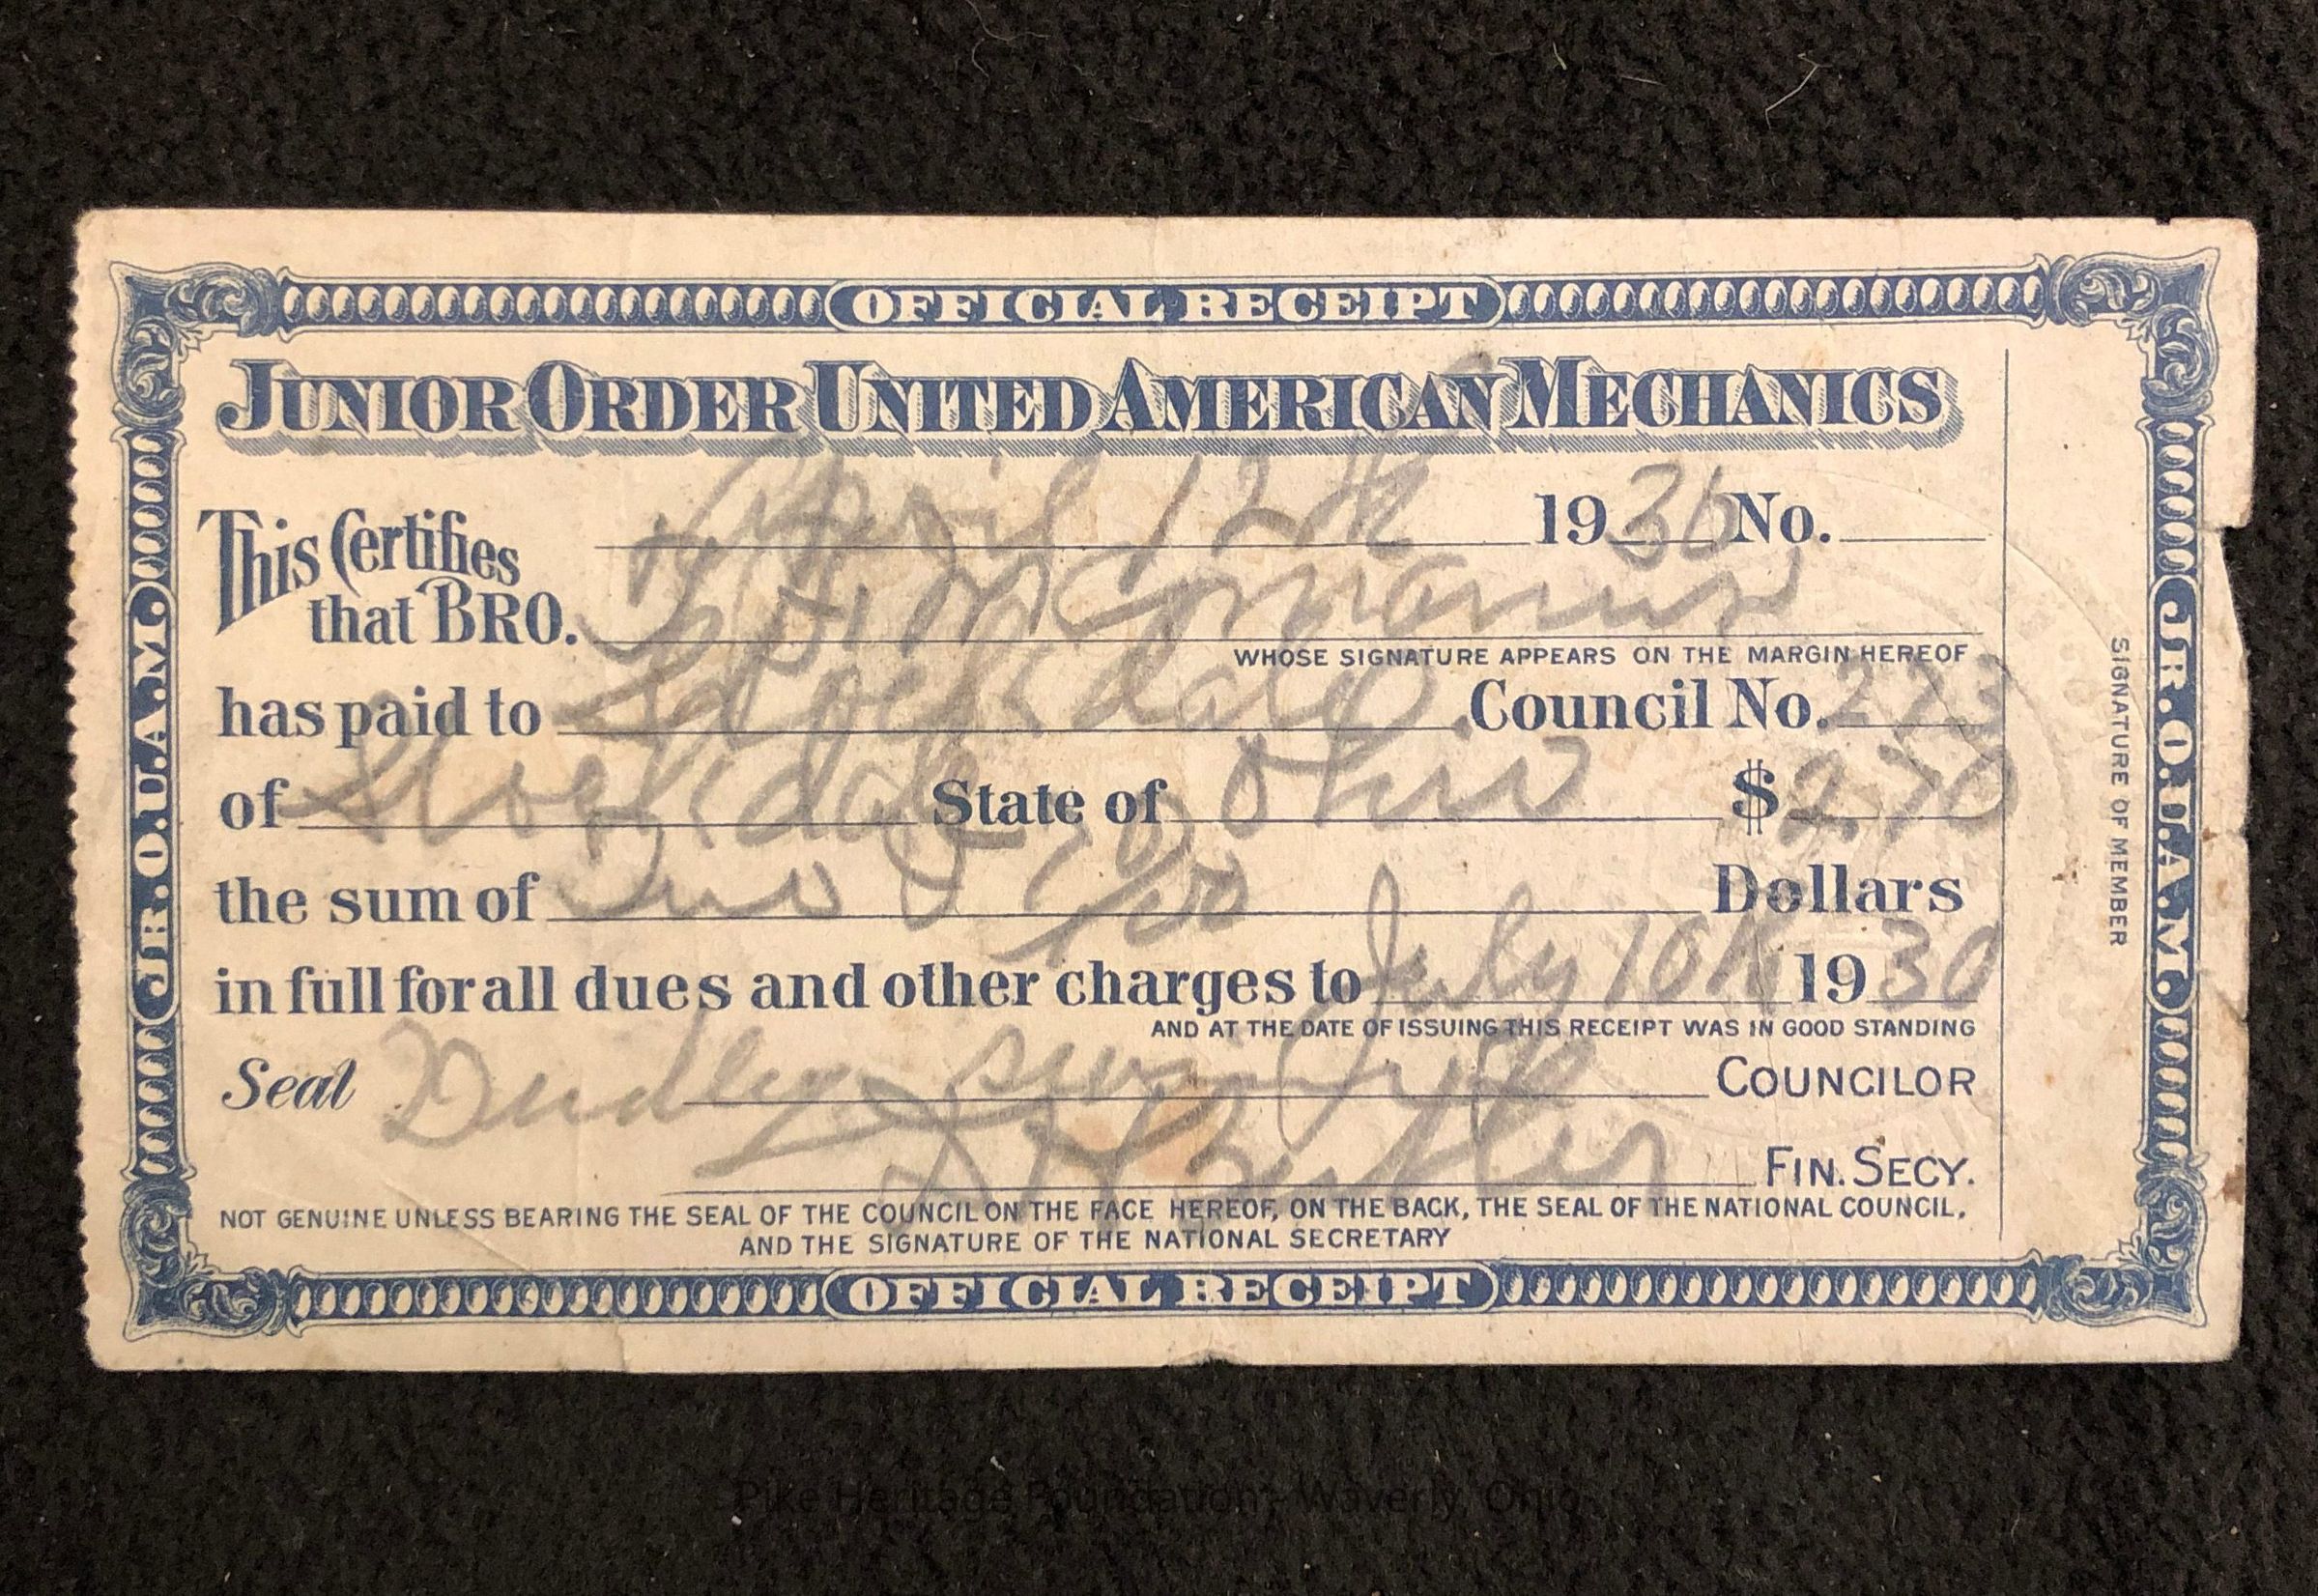 OFFICIAL RECEIPT
JUNIOR ORDER UNITED AMERICAN MECHANICS
April 12th 1930 No.
This Certifies that BRO. McManus
WHOSE SIGNATURE APPEARS ON THE MARGIN HEREOF
has paid to Stockdale Council No. 273
of Stockdale State of Ohio $ 2.70
the sum of Two & 70/100 Dollars
in full for all dues and other charges to July 10th 1930
AND AT THE DATE OF ISSUING THIS RECEIPT WAS IN GOOD STANDING
Seal Dudley COUNCILOR
Butler FIN. SECY.
NOT GENUINE UNLESS BEARING THE SEAL OF THE COUNCIL ON THE FACE HEREOF, ON THE BACK, THE SEAL OF THE NATIONAL COUNCIL,
AND THE SIGNATURE OF THE NATIONAL SECRETARY
OFFICIAL RECEIPT
JR.O.U.A.M.
SIGNATURE OF MEMBER
JR.O.U.A.M.
Pike Heritage Foundation - Waverly, Ohio